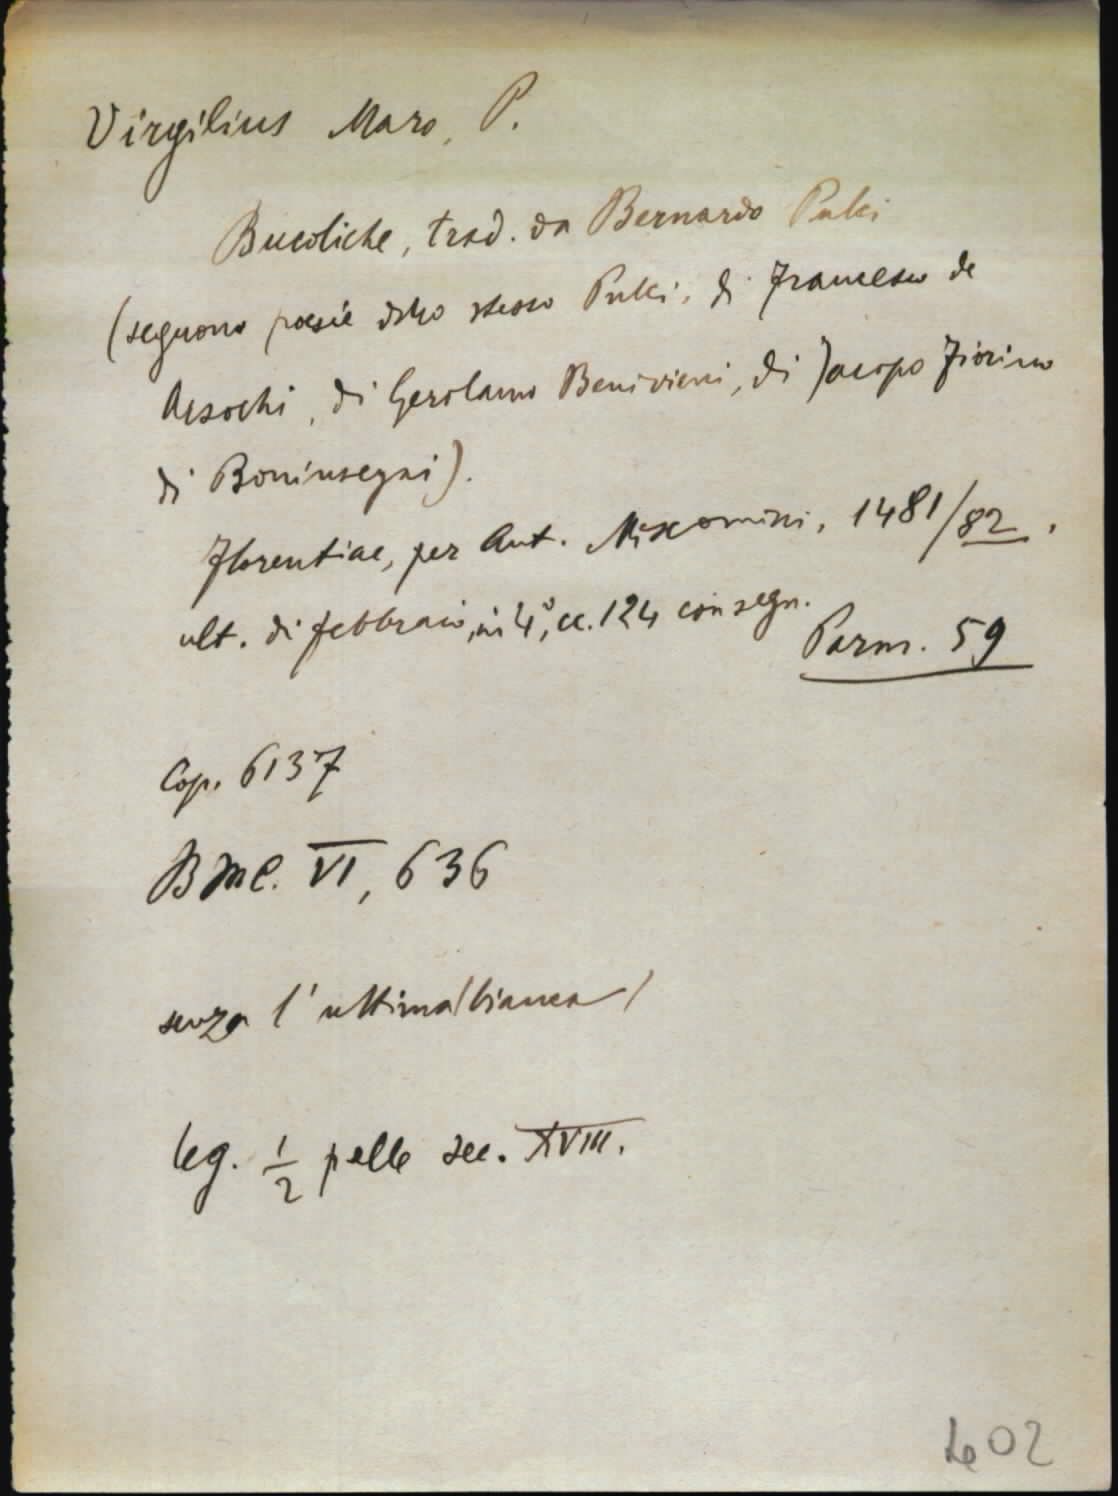 Virgilius Maro, P.
Bucoliche, trad. da Bernardo Pulci
(seguono poesie dello stesso Pulci, di Francesco de
Arsochi, di Gerolamo Benivieni, di Jacopo Fiorino
di Boninsegni).
Florentiae, per Ant. Miscomini, 1481/82.
ult. di febbraio, in 4°, cc. 124 con segn.
Parm. 59
Cop. 6137
BMC. VI, 636
senza l'ultima (bianca)
leg. 1/2 pelle sec. XVIII.
402